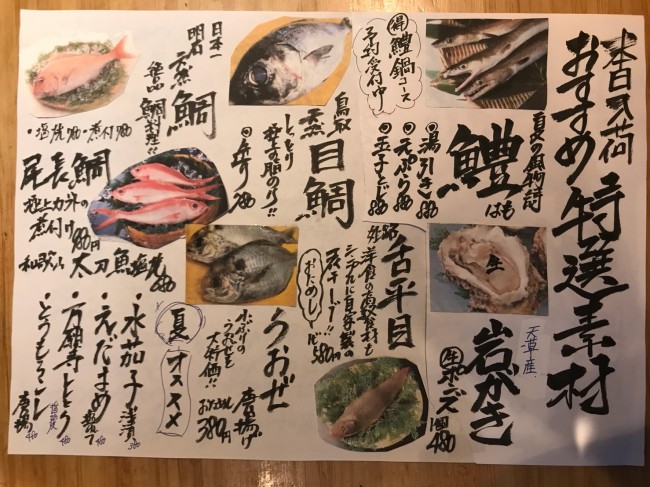 本日入荷
おすすめ特選素材
鱧鍋コース
予約受付中
夏の風物詩
鱧
はも
湯引き
天ぷら
玉子とじ
天草産
岩がき
生
生ポン酢
1個
480
鳥取
天然
目鯛
しっとり
極上の脂のり!!
造り
舌平目
洋食の高級食材を
シンプルに自家製の
おだしで
580円
うおぜ
小ぶりの
うおぜを
大特価!!
唐揚げ
380円
日本一
明石
天然
鯛
絶品
鯛料理!!
・塩焼
・煮付
尾長鯛
極上カマの
煮付け
和歌山
太刀魚塩焼
夏オススメ
・水茄子
浅漬
・えだまめ
・万願寺とう
・とうもろこし
唐揚